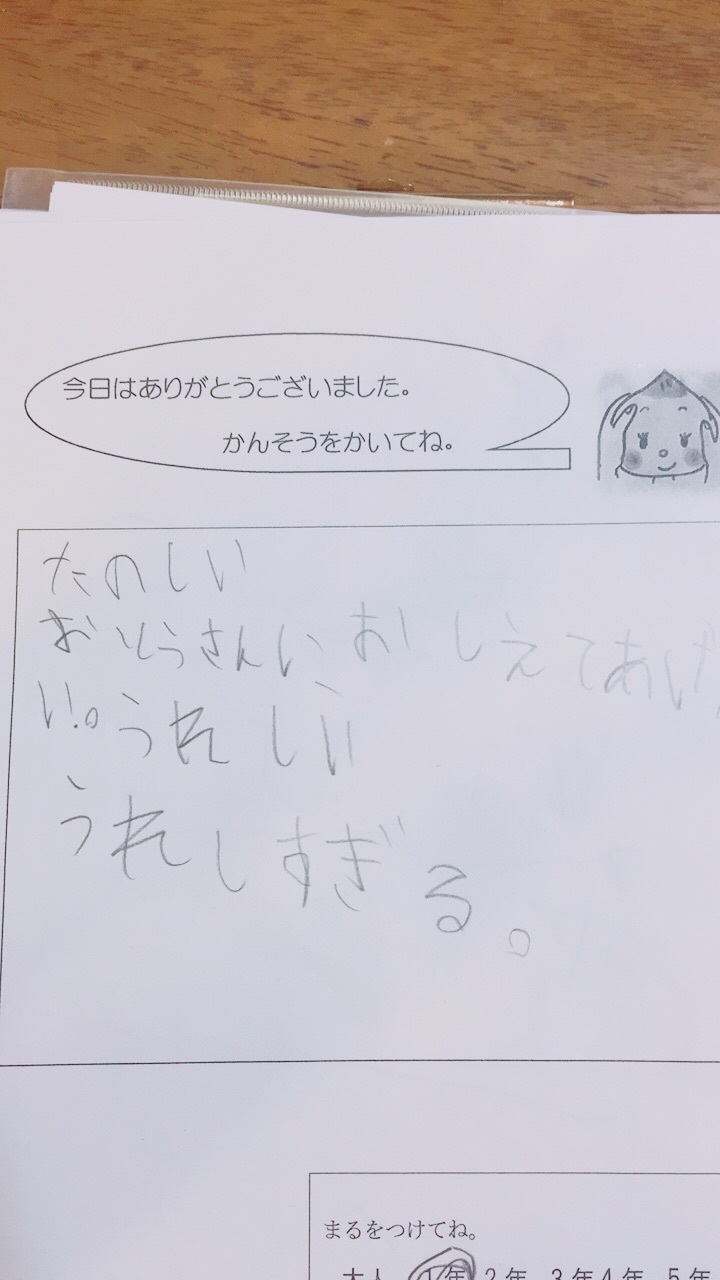 今日はありがとうございました。
かんそうをかいてね。
たのしい
おとうさんに、おしえてあげ
い。うれしい
うれしすぎる。
まるをつけてね。
大人 1年 2年 3年 4年 5年